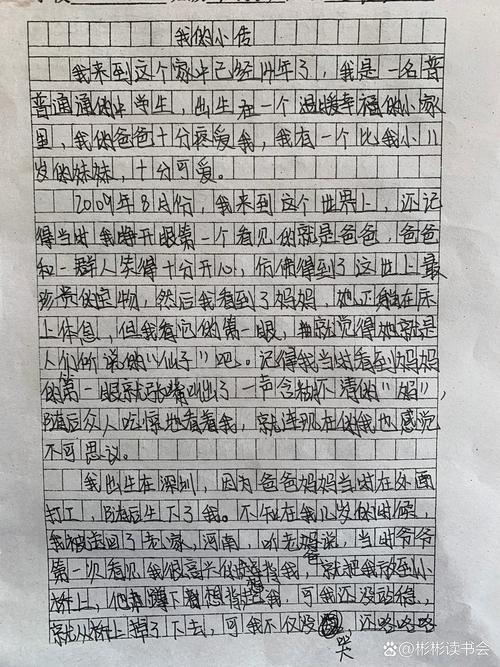 我的小传
我来到这个家中已经14年了，我是一名普
普通通的中学生，出生在一个温暖幸福的小家
里，我的爸爸十分疼爱我，我有一个比我小11
岁的妹妹，十分可爱。
2009年8月份，我来到这个世界上，还记
得当时我睁开眼第一个看见的就是爸爸，爸爸
和一群人笑得十分开心，仿佛得到了这世上最
珍贵的宝物，然后我看到了妈妈，她正躺在床
上休息，但我看它的第一眼，就觉得她就是
人们所说的"仙子"吧。记得我当时看到妈妈
的第一眼就张嘴叫出了一声含糊不清的"妈"，
随后众人吃惊地看着我，就连现在的我也感觉
不可思议。
我出生在深圳，因为爸爸妈妈当时在外面
打工，随后生下了我。不知在我几岁的时候，
我被送回了老家，河南，听老妈说，当时爷爷
第一次看见我很高兴的背我，就把我放到小
桥上，他蹲下着想背起我，可我还没站稳，
就从桥上掉了下去，可我不仅没哭，还咯咯咯
@彬彬读书会